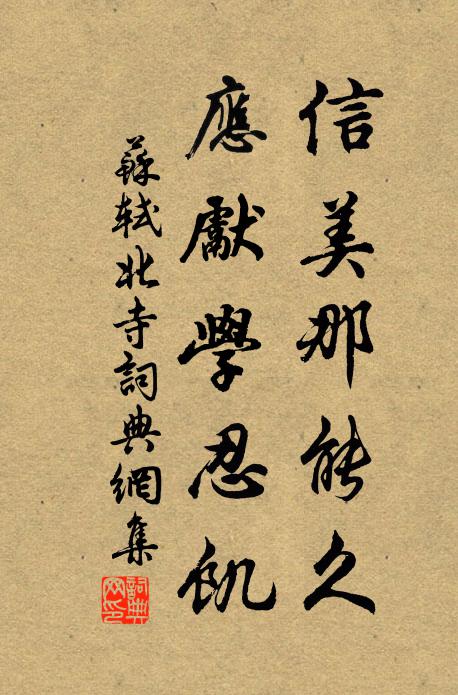 信美那能久
應獻學忍飢
蘇軾北寺詞典網集
詞典
网印